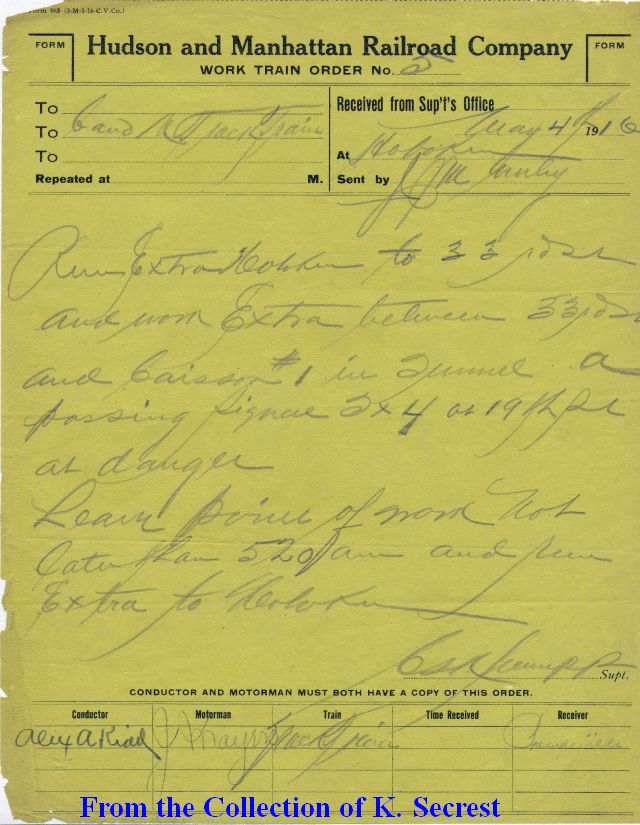 Form 985 (3-M-1-16-C.V.Co.)
FORM Hudson and Manhattan Railroad Company FORM
WORK TRAIN ORDER No. 5
To C and M Track Train
To
To
Repeated at M.
Received from Sup't's Office
May 4th 1916
At Hoboken
Sent by
Run Extra Hoboken to 33rd st
and work Extra between 33rd st
and Caisson #1 in Tunnel a
passing signal 2x4 at 19th St
at danger
Leave point of work Not
later than 520 am and run
Extra to Hoboken
Supt.
CONDUCTOR AND MOTORMAN MUST BOTH HAVE A COPY OF THIS ORDER.
Conductor Motorman Train Time Received Receiver
Alex A Kidd Track Train
From the Collection of K. Secrest